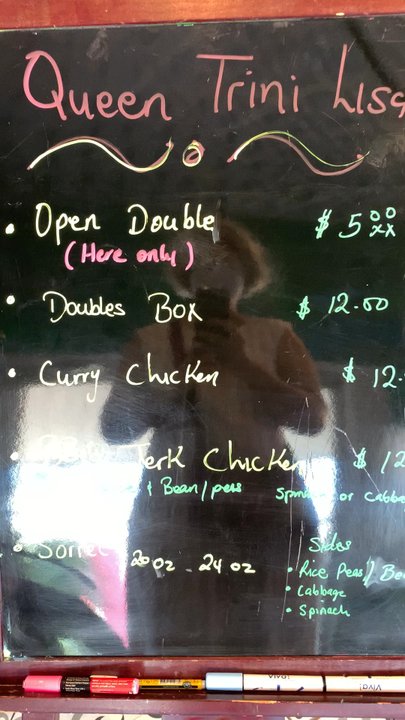 Queen Trini Lisa
• Open Double $ 5 00/xx
(Here only)
• Doubles Box $ 12.00
• Curry Chicken $ 12.
• Jerk Chicken $ 12
Bean/peas or cabba
• Sorrel 20 oz - 24 oz
Sides
• Rice Peas/
• Cabbage
• Spinach
Viva!